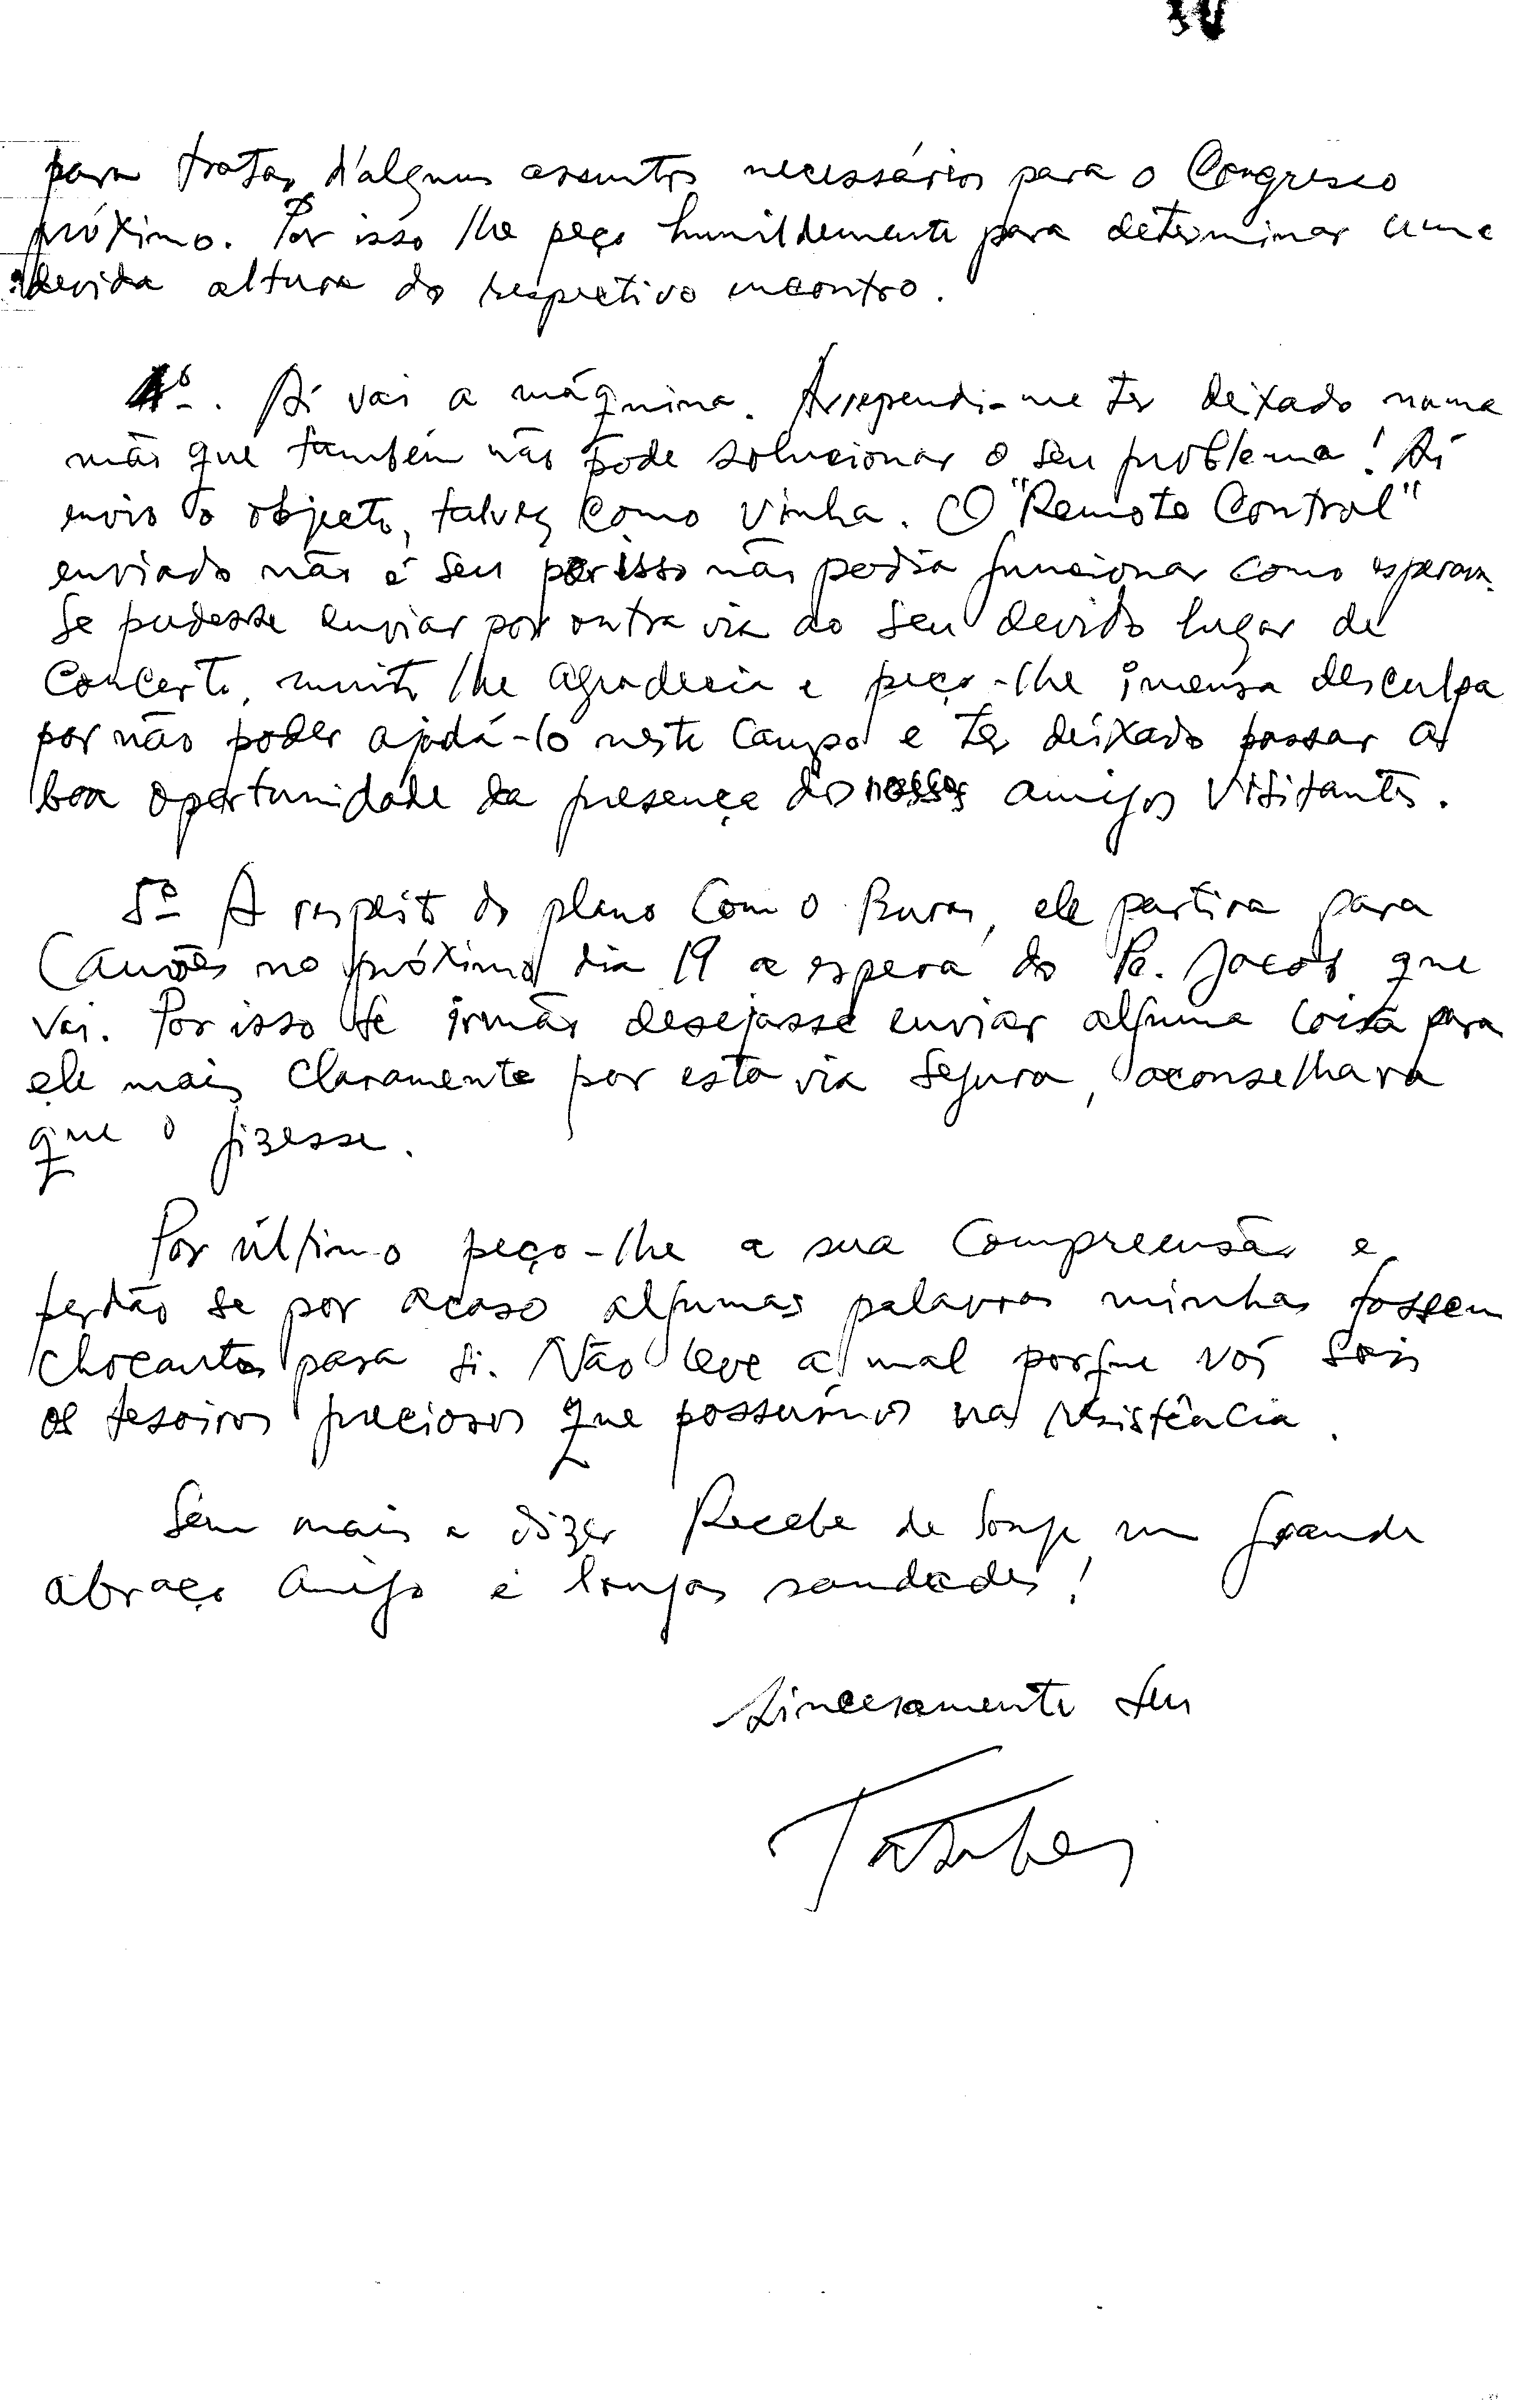 para tratar d'alguns assuntos necessários para o Congresso
próximo. Por isso lhe peço humildemente para determinar uma
devida altura do respectivo encontro.
4º. Aí vai a máquina. Arrependi-me ter deixado numa
mão que também não pode solucionar o seu problema! Aí
envio o objecto, talvez como vinha. O "Remote Control"
enviado não é seu por isso não podia funcionar como esperava.
Se pudesse enviar por outra via ao seu devido lugar de
concerto, muito lhe agradecia e peço-lhe imensa desculpa
por não poder ajudá-lo neste campo e ter deixado passar a
boa oportunidade da presença dos nossos amigos visitantes.
5º A respeito do plano com o Buras, ele partira para
Camões no próximo dia 19 a espera do Pe. Jacob que
vai. Por isso se irmão desejasse enviar alguma coisa para
ele mais claramente por esta via segura, aconselhara
que o fizesse.
Por último peço-lhe a sua compreensão e
perdão se por acaso algumas palavras minhas fossem
chocantes para si. Não leve a mal porque vós sois
os tesoiros preciosos que possuímos na resistência.
Sem mais a dizer Recebe de longe um grande
abraço amigo e longas saudades!
Sinceramente seu